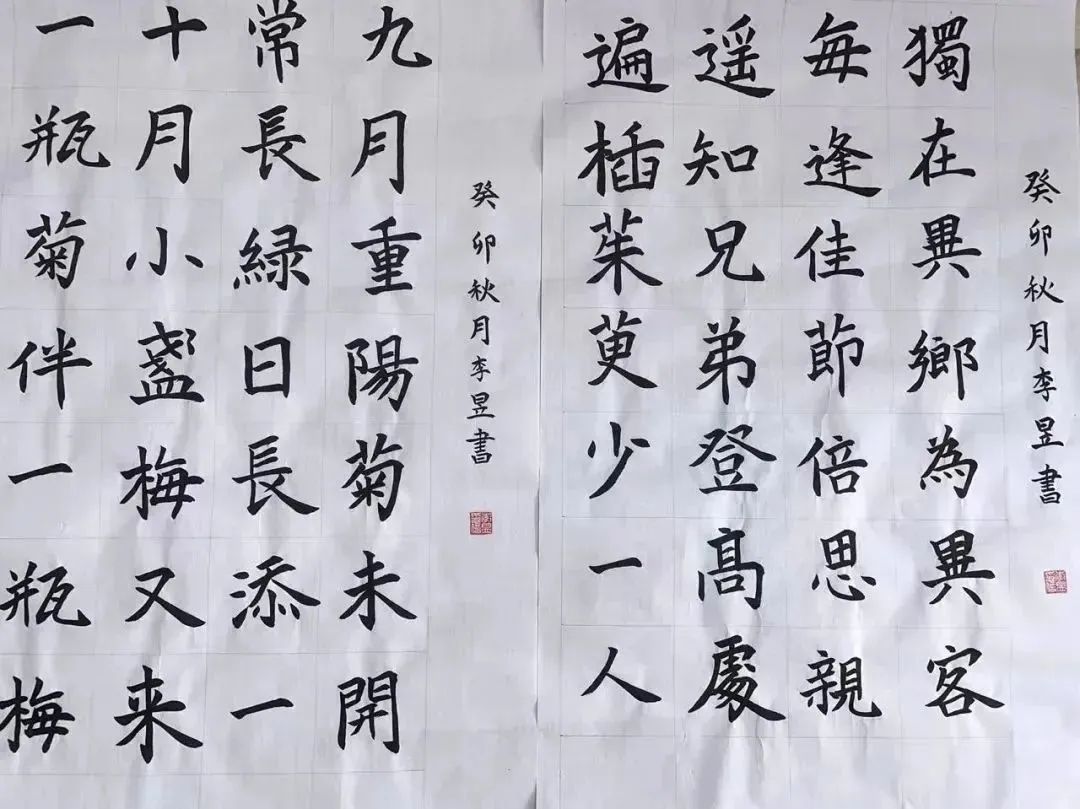 癸卯秋月李昱書
獨在異鄉為異客
每逢佳節倍思親
遥知兄弟登髙處
遍插茱萸少一人
癸卯秋月李昱書
九月重陽菊未開
常長緑日長添一
十月小盞梅又来
一瓶菊伴一瓶梅